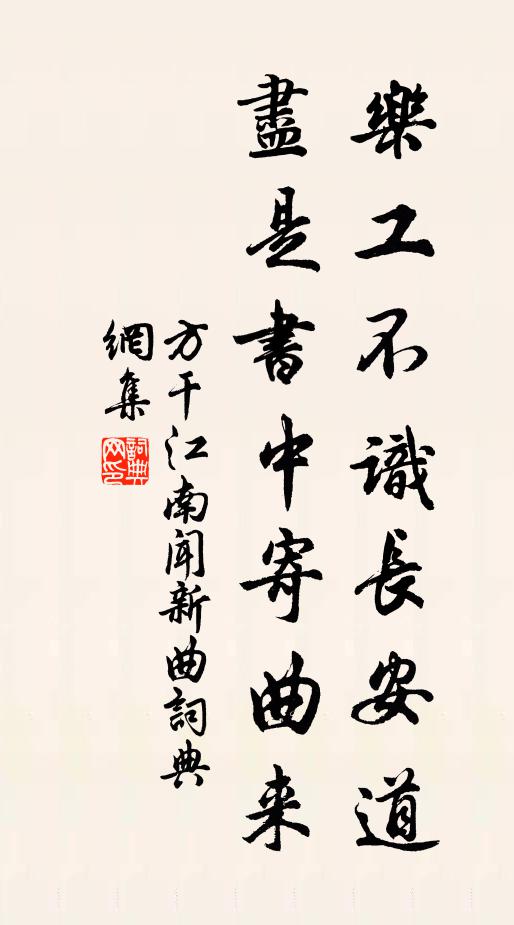 樂工不識長安道
盡是書中寄曲来
方干江南聞新曲詞典
網集
詞典网印